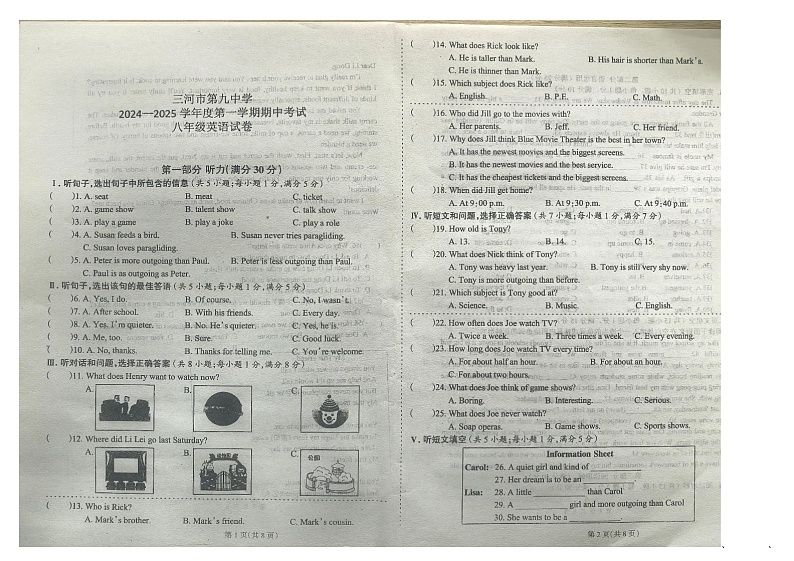 三河市第九中学
2024—2025 学年度第一学期期中考试
八年级英语试卷
第一部分 听力(满分 30 分)
Ⅰ. 听句子,选出句子中所包含的信息(共 5 小题;每小题 1 分,满分 5 分)
( )1. A. seat B. meat C. ticket
( )2. A. game show B. talent show C. talk show
( )3. A. play a game B. play a joke C. play a role
( )4. A. Susan feeds a bird. B. Susan never tries paragliding.
C. Susan loves paragliding.
( )5. A. Peter is more outgoing than Paul. B. Peter is less outgoing than Paul.
C. Paul is as outgoing as Peter.
Ⅱ. 听句子,选出该句的最佳答语(共 5 小题;每小题 1 分,满分 5 分)
( )6. A. Yes, I do. B. Of course. C. No, I wasn't.
( )7. A. After school. B. With his friends. C. Every day.
( )8. A. Yes, I'm quieter. B. No. He's quieter. C. Yes, he is.
( )9. A. Me, too. B. Sure. C. Good luck.
( )10. A. No, thanks. B. Thanks for telling me. C. You're welcome.
Ⅲ. 听对话和问题,选择正确答案(共 8 小题;每小题 1 分,满分 8 分)
( )11. What does Henry want to watch now?
A. B. C.
( )12. Where did Li Lei go last Saturday?
A. B. C.
公园
( )13. Who is Rick?
A. Mark's brother. B. Mark's friend. C. Mark's cousin.
第 1 页(共 8 页)
( )14. What does Rick look like?
A. He is taller than Mark. B. His hair is shorter than Mark's.
C. He is thinner than Mark.
( )15. Which subject does Rick like?
A. English. B. P.E. C. Math.
( )16. Who did Jill go to the movies with?
A. Her parents. B. Jeff. C. Her friend.
( )17. Why does Jill think Blue Movie Theater is the best in her town?
A. It has the newest movies and the biggest screens.
B. It has the newest movies and the best service.
C. It has the cheapest tickets and the biggest screens.
( )18. When did Jill get home?
A. At 9:00 p.m. B. At 9:30 p.m. C. At 9:40 p.m.
Ⅳ. 听短文和问题,选择正确答案(共 7 小题;每小题 1 分,满分 7 分)
( )19. How old is Tony?
A. 13. B. 14. C. 15.
( )20. What does Nick think of Tony?
A. Tony was heavy last year. B. Tony is still very shy now.
C. Tony is more outgoing than before.
( )21. Which subject is Tony good at?
A. Science. B. Music. C. English.
( )22. How often does Joe watch TV?
A. Twice a week. B. Three times a week. C. Every evening.
( )23. How long does Joe watch TV every time?
A. For about half an hour. B. For about an hour.
C. For about two hours.
( )24. What does Joe think of game shows?
A. Boring. B. Interesting. C. Serious.
( )25. What does Joe never watch?
A. Soap operas. B. Game shows. C. Sports shows.
Ⅴ. 听短文填空(共 5 小题;每小题 1 分,满分 5 分)
Information Sheet
Carol: 26. A quiet girl and kind of ____
27. Her dream is to be an ____
Lisa: 28. A little ____ than Carol
29. A ____ girl and more outgoing than Carol
30. She wants to be a ____.
第 2 页(共 8 页)